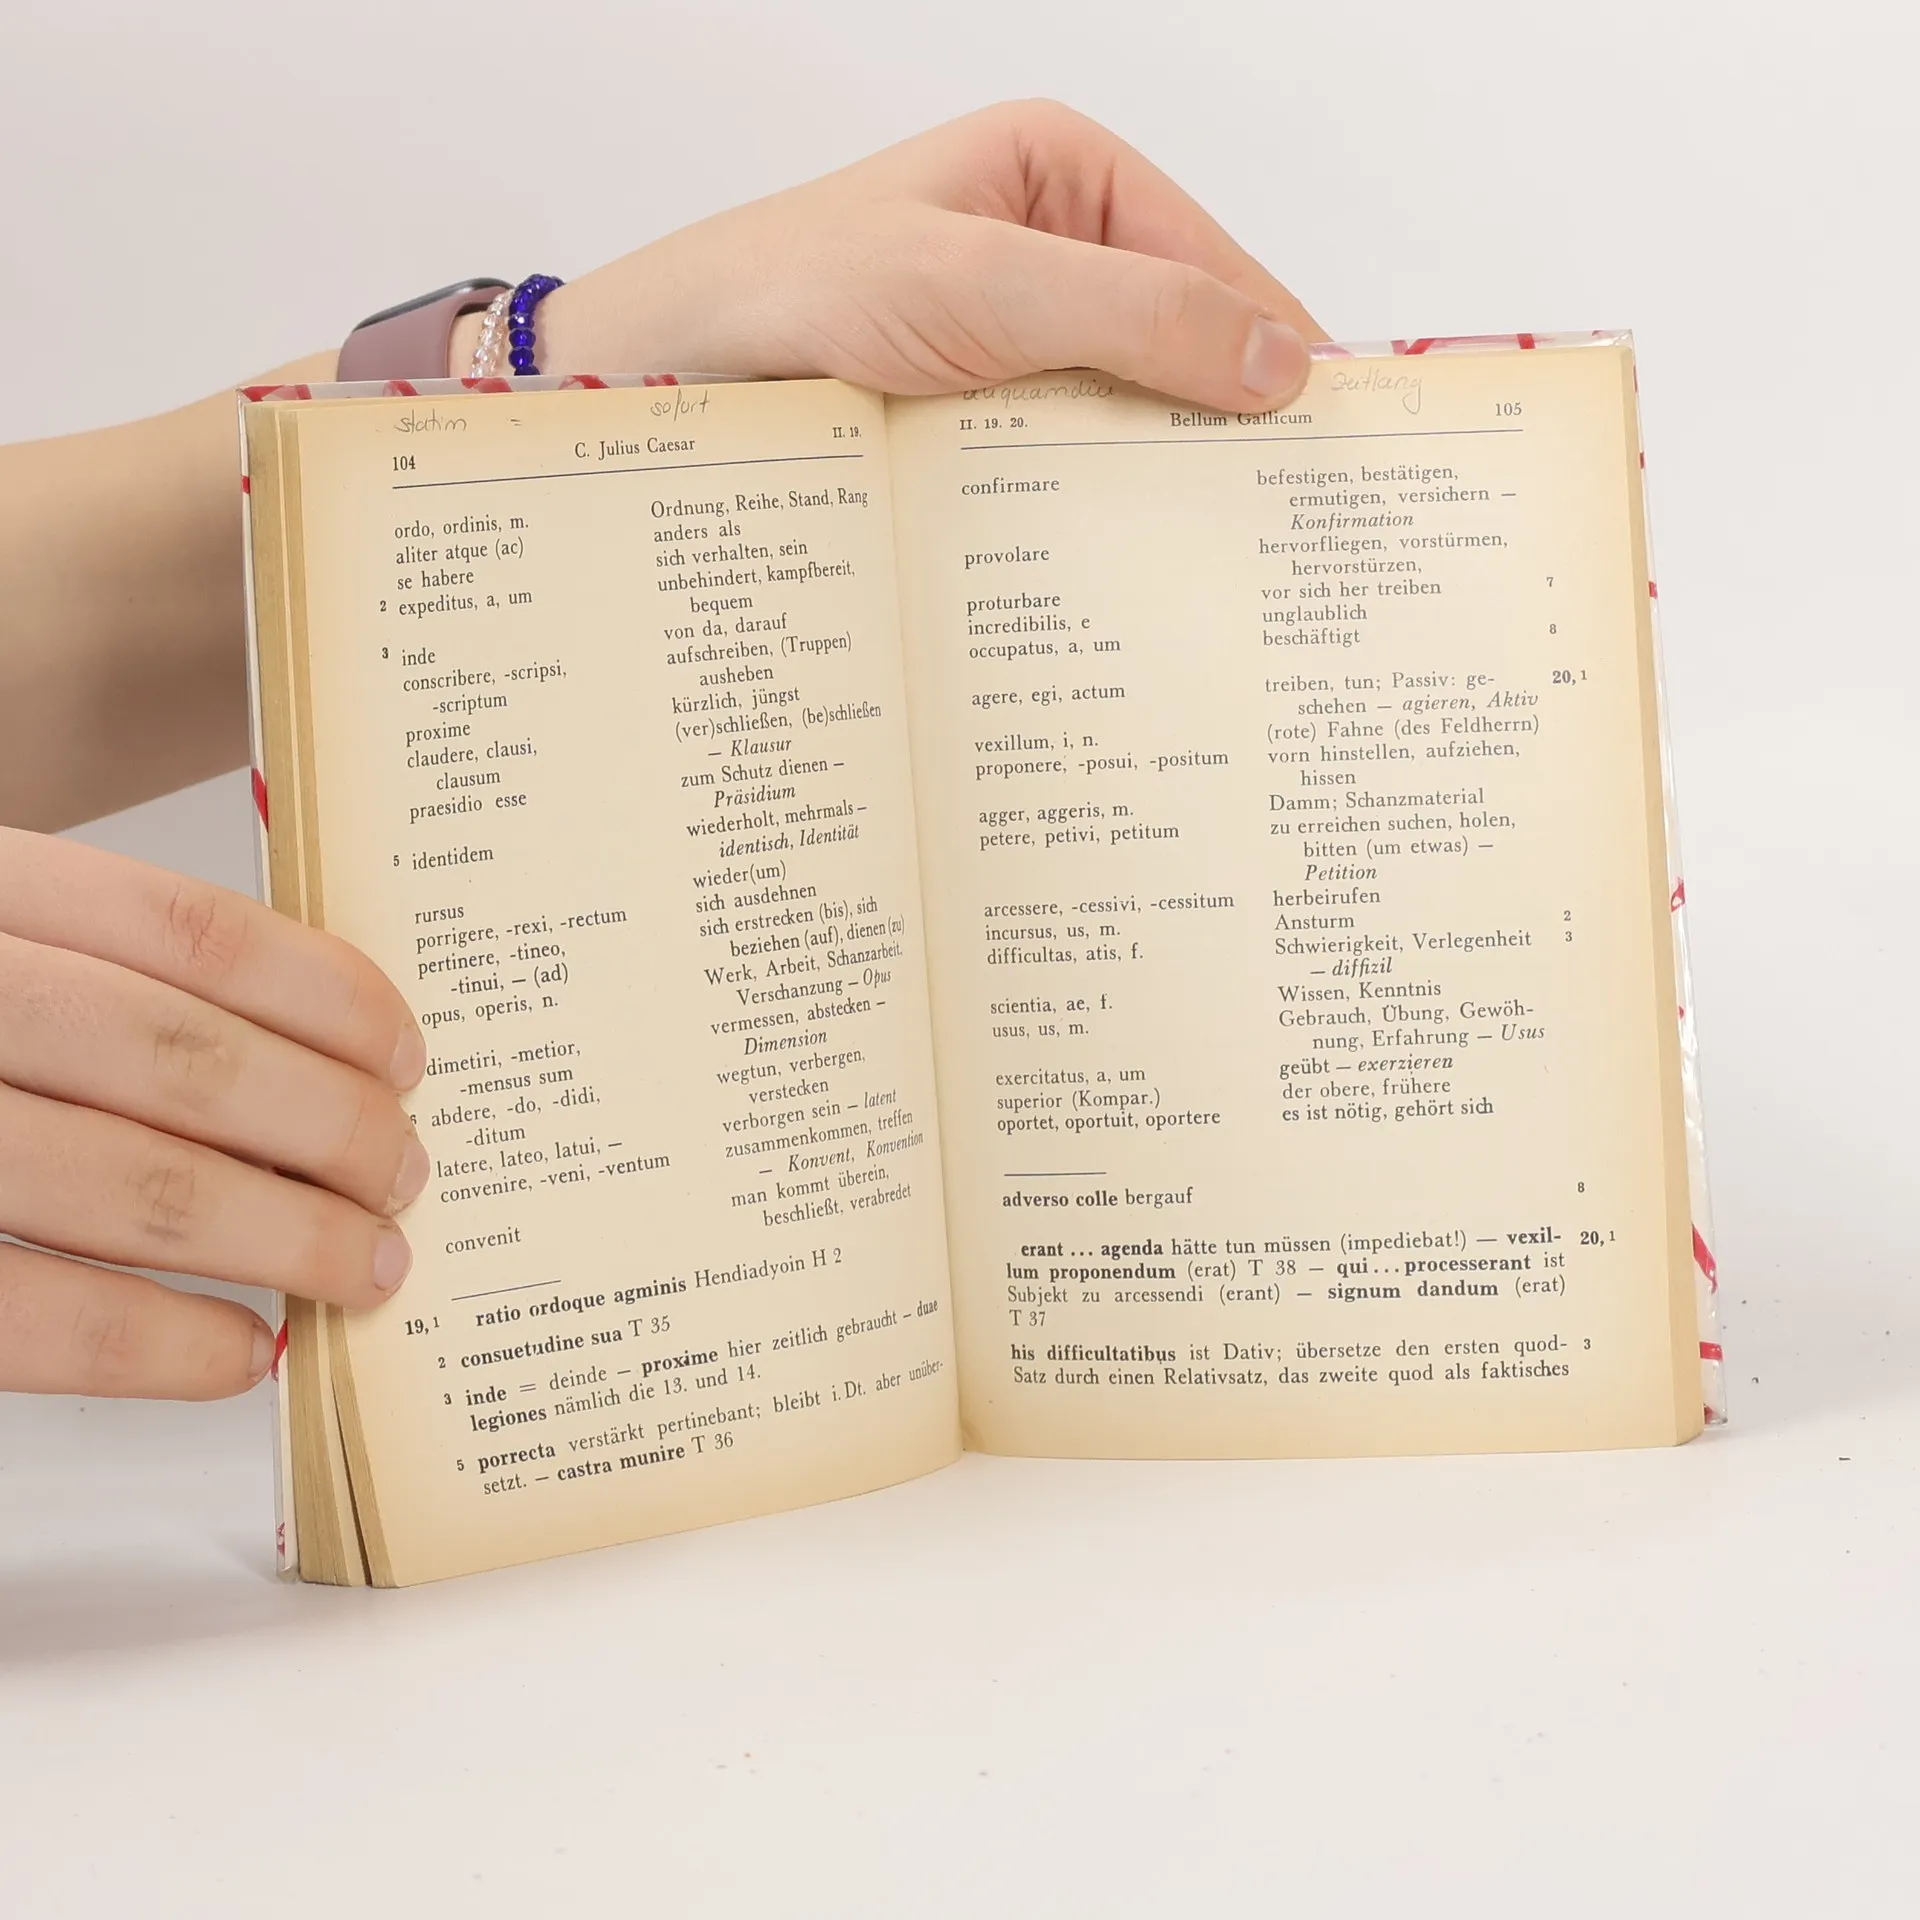 statim = sofort
104 C. Julius Caesar II. 19.
ordo, ordinis, m. Ordnung, Reihe, Stand, Rang
aliter atque (ac) anders als
se habere sich verhalten, sein
2 expeditus, a, um unbehindert, kampfbereit,
bequem
3 inde von da, darauf
conscribere, -scripsi, aufschreiben, (Truppen)
-scriptum ausheben
proxime kürzlich, jüngst
claudere, clausi, (ver)schließen, (be)schließen
clausum – Klausur
praesidio esse zum Schutz dienen –
Präsidium
5 identidem wiederholt, mehrmals –
identisch, Identität
rursus wieder(um)
porrigere, -rexi, -rectum sich ausdehnen
pertinere, -tineo, sich erstrecken (bis), sich
-tinui, – (ad) beziehen (auf), dienen (zu)
opus, operis, n. Werk, Arbeit, Schanzarbeit.
Verschanzung – Opus
dimetiri, -metior, vermessen, abstecken –
-mensus sum Dimension
6 abdere, -do, -didi, wegtun, verbergen,
-ditum verstecken
latere, lateo, latui, – verborgen sein – latent
convenire, -veni, -ventum zusammenkommen, treffen
– Konvent, Konvention
convenit man kommt überein,
beschließt, verabredet
19,1 ratio ordoque agminis Hendiadyoin H 2
2 consuetudine sua T 35
3 inde = deinde – proxime hier zeitlich gebraucht – duae
legiones nämlich die 13. und 14.
5 porrecta verstärkt pertinebant; bleibt i. Dt. aber unüber-
setzt. – castra munire T 36
aliquamdiu zeitlang
II. 19. 20. Bellum Gallicum 105
confirmare befestigen, bestätigen,
ermutigen, versichern –
Konfirmation
provolare hervorfliegen, vorstürmen,
hervorstürzen,
proturbare vor sich her treiben 7
incredibilis, e unglaublich
occupatus, a, um beschäftigt 8
agere, egi, actum treiben, tun; Passiv: ge- 20,1
schehen – agieren, Aktiv
vexillum, i, n. (rote) Fahne (des Feldherrn)
proponere, -posui, -positum vorn hinstellen, aufziehen,
hissen
agger, aggeris, m. Damm; Schanzmaterial
petere, petivi, petitum zu erreichen suchen, holen,
bitten (um etwas) –
Petition
arcessere, -cessivi, -cessitum herbeirufen
incursus, us, m. Ansturm 2
difficultas, atis, f. Schwierigkeit, Verlegenheit 3
– diffizil
scientia, ae, f. Wissen, Kenntnis
usus, us, m. Gebrauch, Übung, Gewöh-
nung, Erfahrung – Usus
exercitatus, a, um geübt – exerzieren
superior (Kompar.) der obere, frühere
oportet, oportuit, oportere es ist nötig, gehört sich
adverso colle bergauf 8
erant ... agenda hätte tun müssen (impediebat!) — vexil- 20,1
lum proponendum (erat) T 38 – qui ... processerant ist
Subjekt zu arcessendi (erant) – signum dandum (erat)
T 37
his difficultatibus ist Dativ; übersetze den ersten quod- 3
Satz durch einen Relativsatz, das zweite quod als faktisches